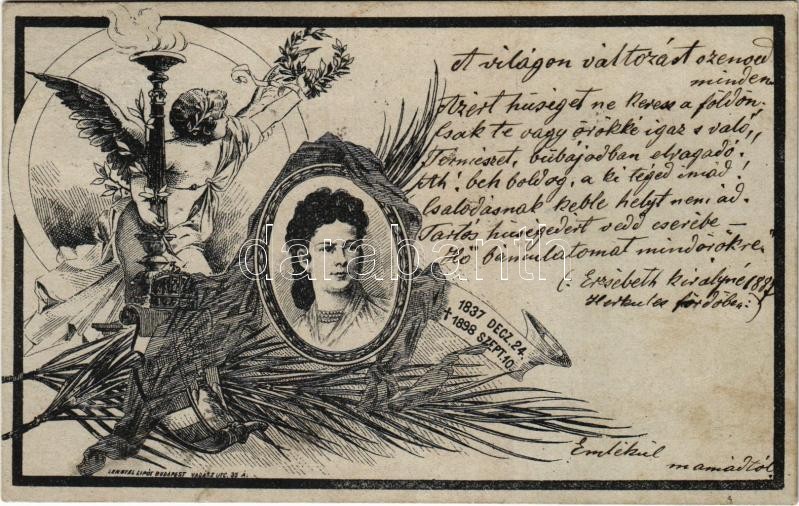 A világon változást szenved
minden.
Azért hűséget ne keress a földön.
Csak te vagy örökké igaz s való,,
Természet, bűbájodban elragadó.
Ah! beh boldog, a ki téged imád!
Csalódásnak keble helyt nem ád.
Tartós hűségedért vedd cserébe –
Hő bámulatomat mindörökre.
(: Erzsébeth királyné 1887
Herkules fürdőben :)
darabanth
1837 DECZ. 24.
† 1898 SZEPT. 10.
Emlékül
mamádtól
LENGYEL LIPÓT BUDAPEST VADÁSZ UTC. 32 A.